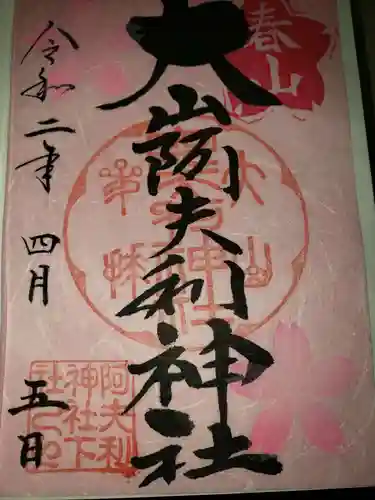 春山
大山阿夫利神社
令和二年四月五日
阿夫利
神社下
社